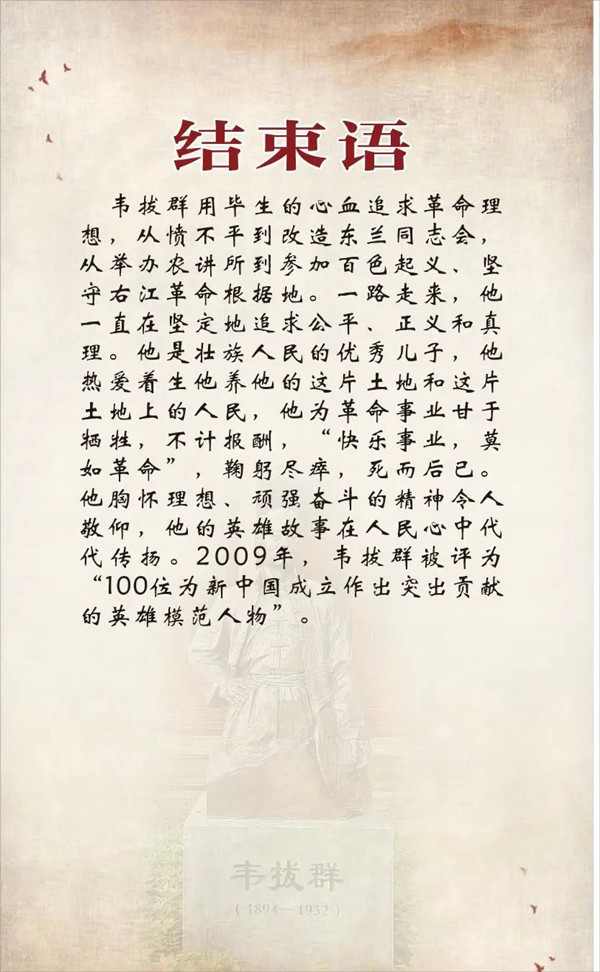 结束语
韦拔群用毕生的心血追求革命理
想，从愤不平到改造东兰同志会，
从举办农讲所到参加百色起义、坚
守右江革命根据地。一路走来，他
一直在坚定地追求公平、正义和真
理。他是壮族人民的优秀儿子，他
热爱着生他养他的这片土地和这片
土地上的人民，他为革命事业甘于
牺牲，不计报酬，“快乐事业，莫
如革命”，鞠躬尽瘁，死而后已。
他胸怀理想、顽强奋斗的精神令人
敬仰，他的英雄故事在人民心中代
代传扬。2009年，韦拔群被评为
“100位为新中国成立作出突出贡献
的英雄模范人物”。
韦拔群
（1894—1932）